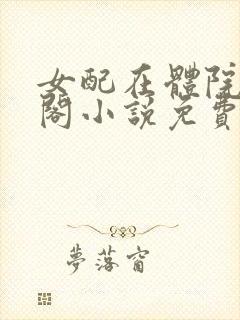 女配在體院
閣小說免費
夢落窗